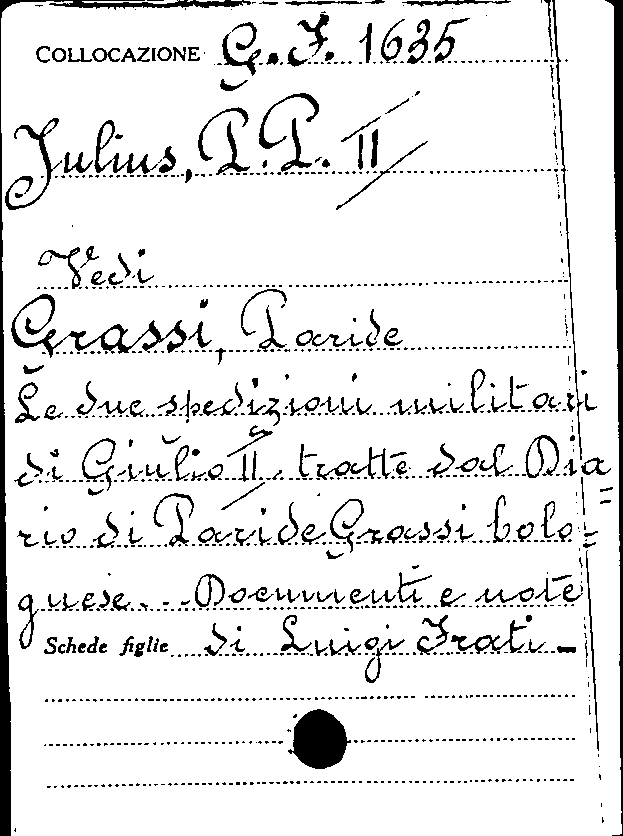 COLLOCAZIONE G. F. 1635
Julius, P.P. II
Vedi
Grassi, Paride
Le due spedizioni militari
di Giulio II. tratte dal Dia=
rio di Paride Grassi bolo=
gnese... Documenti e note
Schede figlie di Luigi Frati -